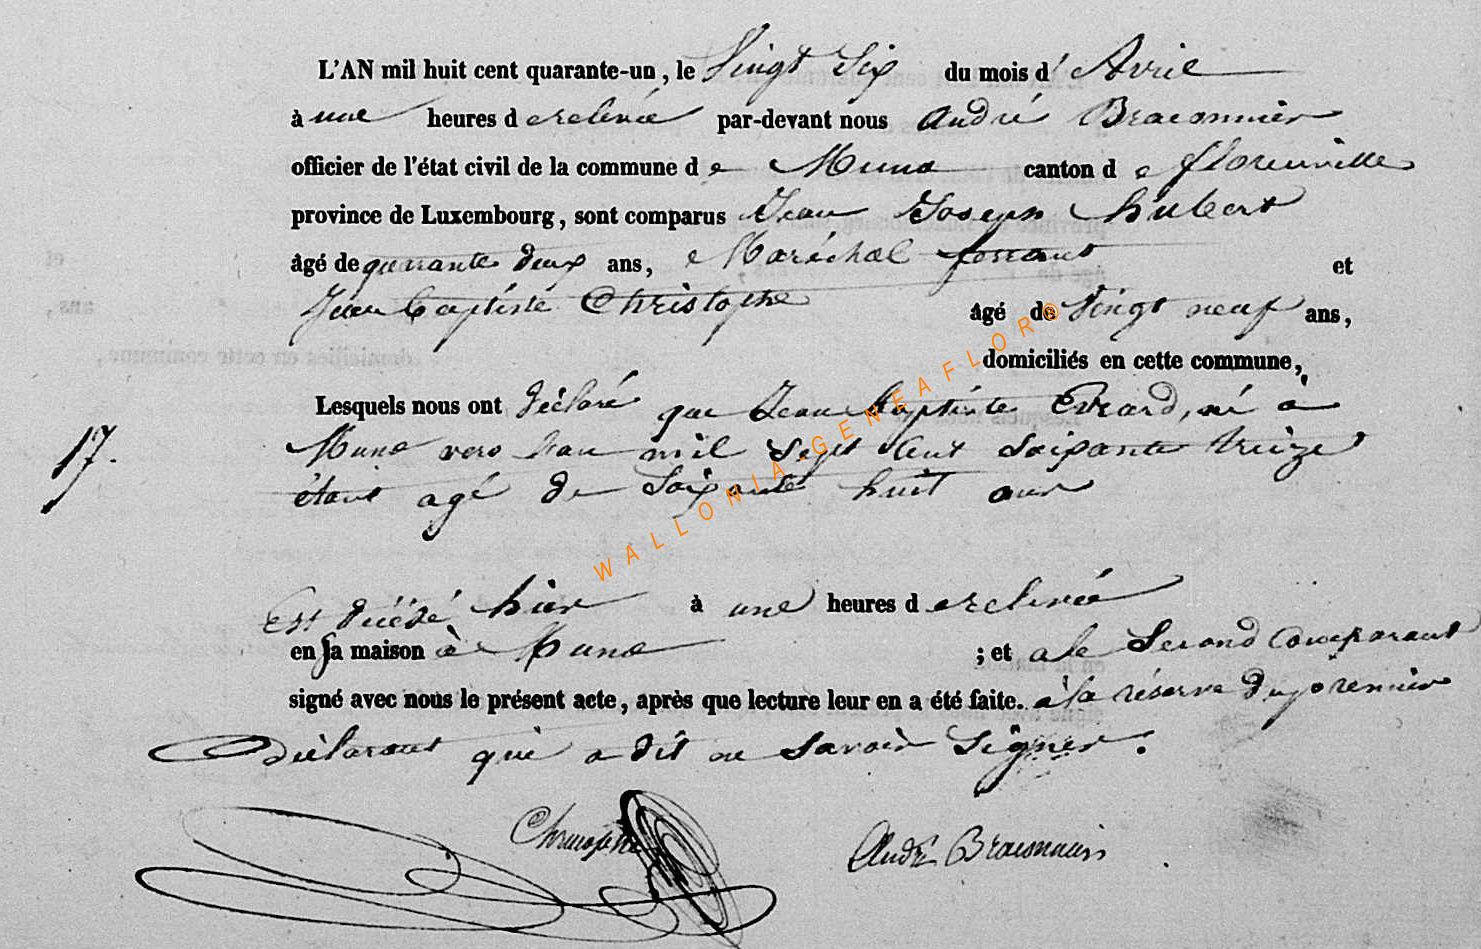 L'AN mil huit cent quarante-un, le Vingt Six du mois d' Avril
à une heures d e relevée par-devant nous André Braconnier
officier de l'état civil de la commune d e Muno canton d e florenville
province de Luxembourg, sont comparus Jean Joseph hubert
âgé de quarante deux ans, Maréchal ferrant et
Jean baptiste Christophe âgé de Vingt neuf ans,
domiciliés en cette commune,
Lesquels nous ont déclaré que Jean baptiste Evrard, né à
17. Muno vers l'an mil Sept Cent Soixante treize
étant agé de Soixante huit ans
Est décédé hier à une heures d e relevée
en sa maison à Muno ; et a le Second Comparant
signé avec nous le présent acte, après que lecture leur en a été faite. à la réserve du premier
Déclarant qui a dit ne Savoir Signer.
Christophe André Braconnier
WALLONIA-GENEAFLOR©